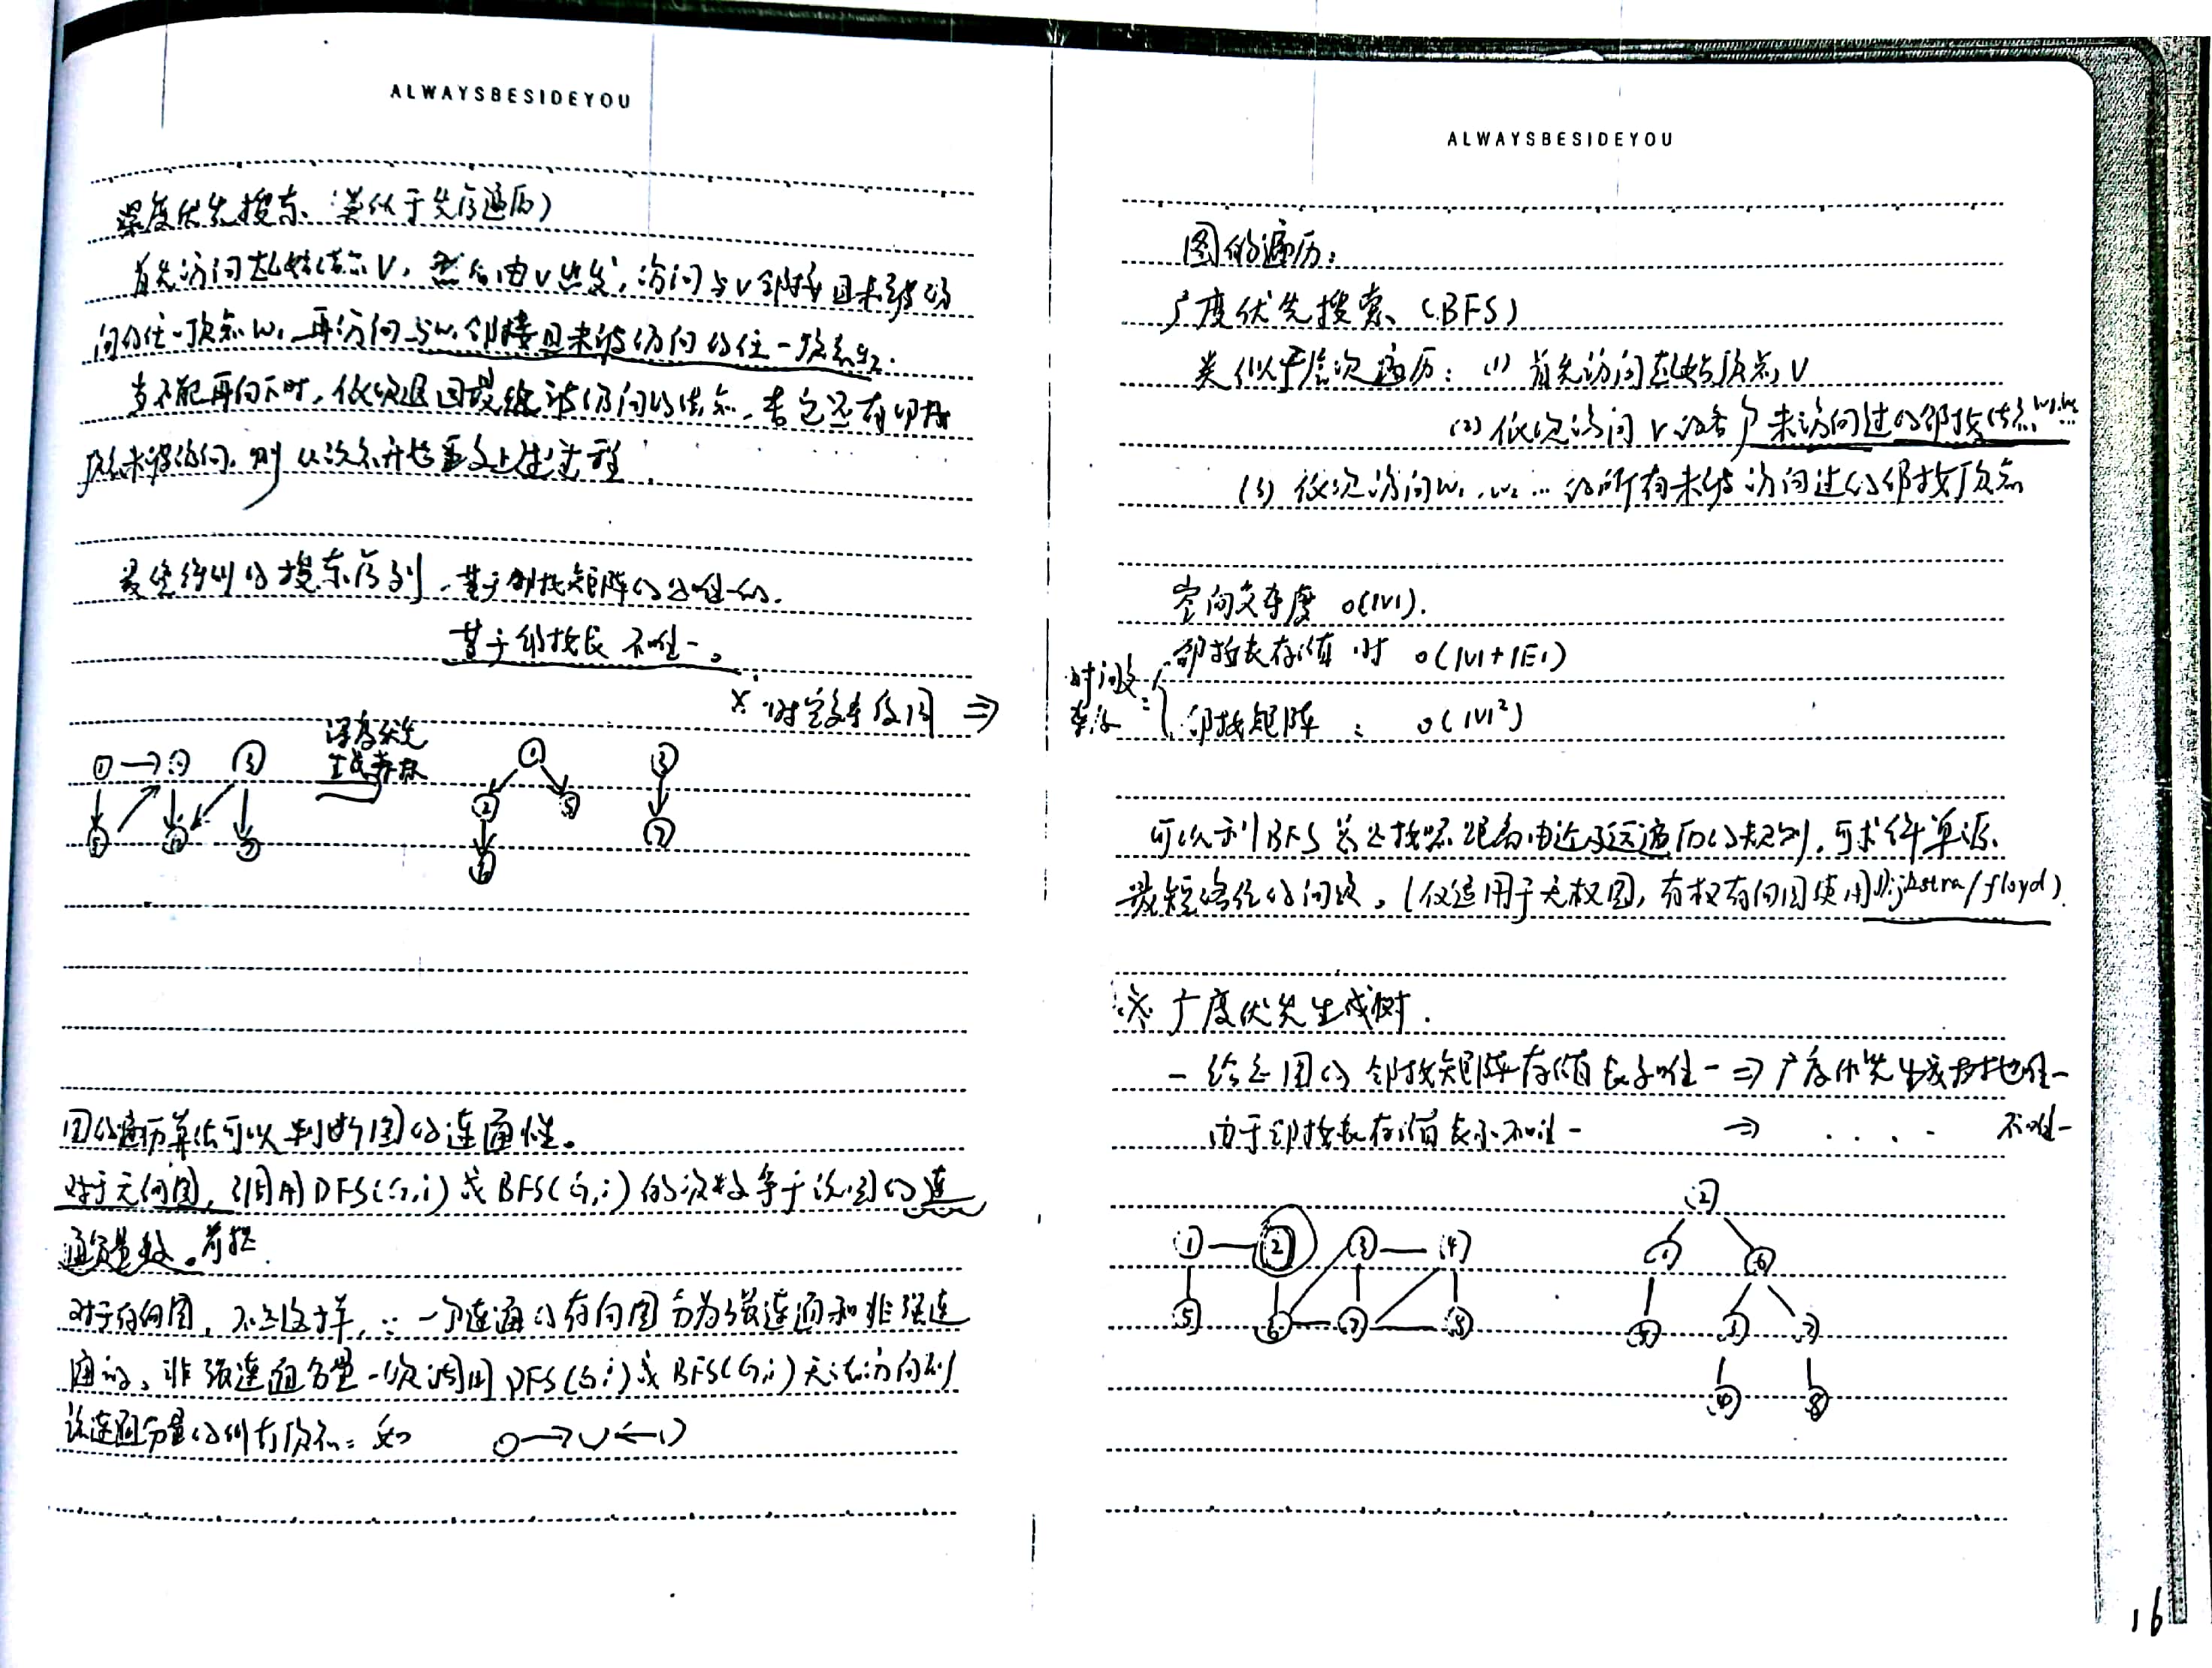 ALWAYSBESIDEYOU
深度优先搜索（类似于先序遍历）
首先访问起始结点V，然后由V出发，访问与V邻接且未被访
问的任一顶点W₁，再访问与W₁邻接且未被访问的任一顶点W₂.
当不能再向下时，依次退回最近被访问的结点，若它还有邻接
顶点未被访问，则从该点开始重复上述过程
最终得到的搜索序列 基于邻接矩阵的是唯一的.
基于邻接表 不唯一。
※ 时空复杂度同 ⇒
深度优先
生成森林
① ② ③
⑤ ⑥ ⑦
① ③
② ⑤ ⑦
⑥
图的遍历算法可以判断图的连通性。
对于无向图，调用DFS(G,i)或BFS(G,i)的次数等于该图的连
通分量数。
对于有向图，不是这样，∵一个连通的有向图分为强连通和非强连
通的，非强连通分量一次调用DFS(G,i)或BFS(G,i)无法访问到
该连通分量的所有顶点：如
ALWAYSBESIDEYOU
图的遍历：
广度优先搜索（BFS）
类似于层次遍历：(1) 首先访问起始顶点V
(2) 依次访问V的各个未访问过的邻接结点W₁,W₂…
(3) 依次访问W₁,W₂…的所有未被访问过的邻接顶点
空间复杂度 O(|V|).
时间复杂度：
邻接表存储时 O(|V|+|E|)
邻接矩阵： O(|V|²)
可以利BFS总是按照距离由近及远遍历的规则，可求解单源
最短路径的问题。(仅适用于无权图，有权有向图使用Dijkstra/floyd).
※ 广度优先生成树.
一给定图的邻接矩阵存储表示唯一 ⇒ 广度优先生成树也唯一
由于邻接表存储表示不唯一 ⇒ .... 不唯一
① ② ③ ④
⑤ ⑥ ⑦ ⑧
②
① ⑥
⑤ ③ ⑦
④ ⑧
16